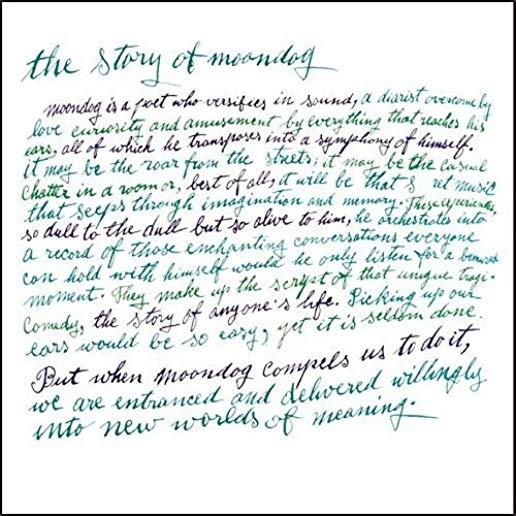 the story of moondog
moondog is a poet who versifies in sound, a diarist overcome by
love curiosity and amusement by everything that reaches his
ears, all of which he transposes into a symphony of himself.
it may be the roar from the streets; it may be the casual
chatter in a room or, best of all, it will be that s ret music
that seeps through imagination and memory. These experiences,
so dull to the dull but so alive to him, he orchestrates into
a record of those enchanting conversations everyone
can hold with himself would he only listen for a
moment. They make up the script of that unique tragi-
comedy, the story of anyone's life. Picking up our
ears would be so easy, yet it is seldom done.
But when moondog compels us to do it,
we are entranced and delivered willingly
into new worlds of meaning.